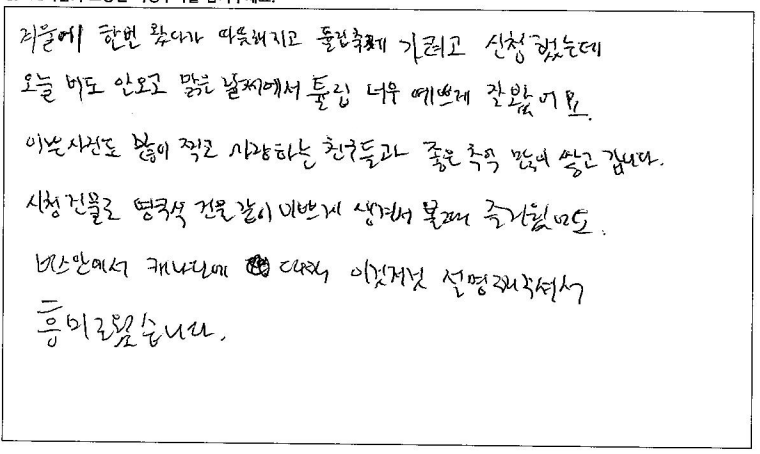 겨울에 한번 왔다가 따뜻해지고 튤립축제 가려고 신청했는데
오늘 비도 안오고 맑은 날씨에서 튤립 너무 예쁘게 잘봤어요.
이쁜사진도 많이 찍고 사랑하는 친구들과 좋은 추억 많이 쌓고 갑니다.
시청건물도 건물같이 이쁘게 생겨서 볼때 즐거웠어요.
버스안에서 캐나다에 대해 이것저것 설명해주셔서
흥미로웠습니다.